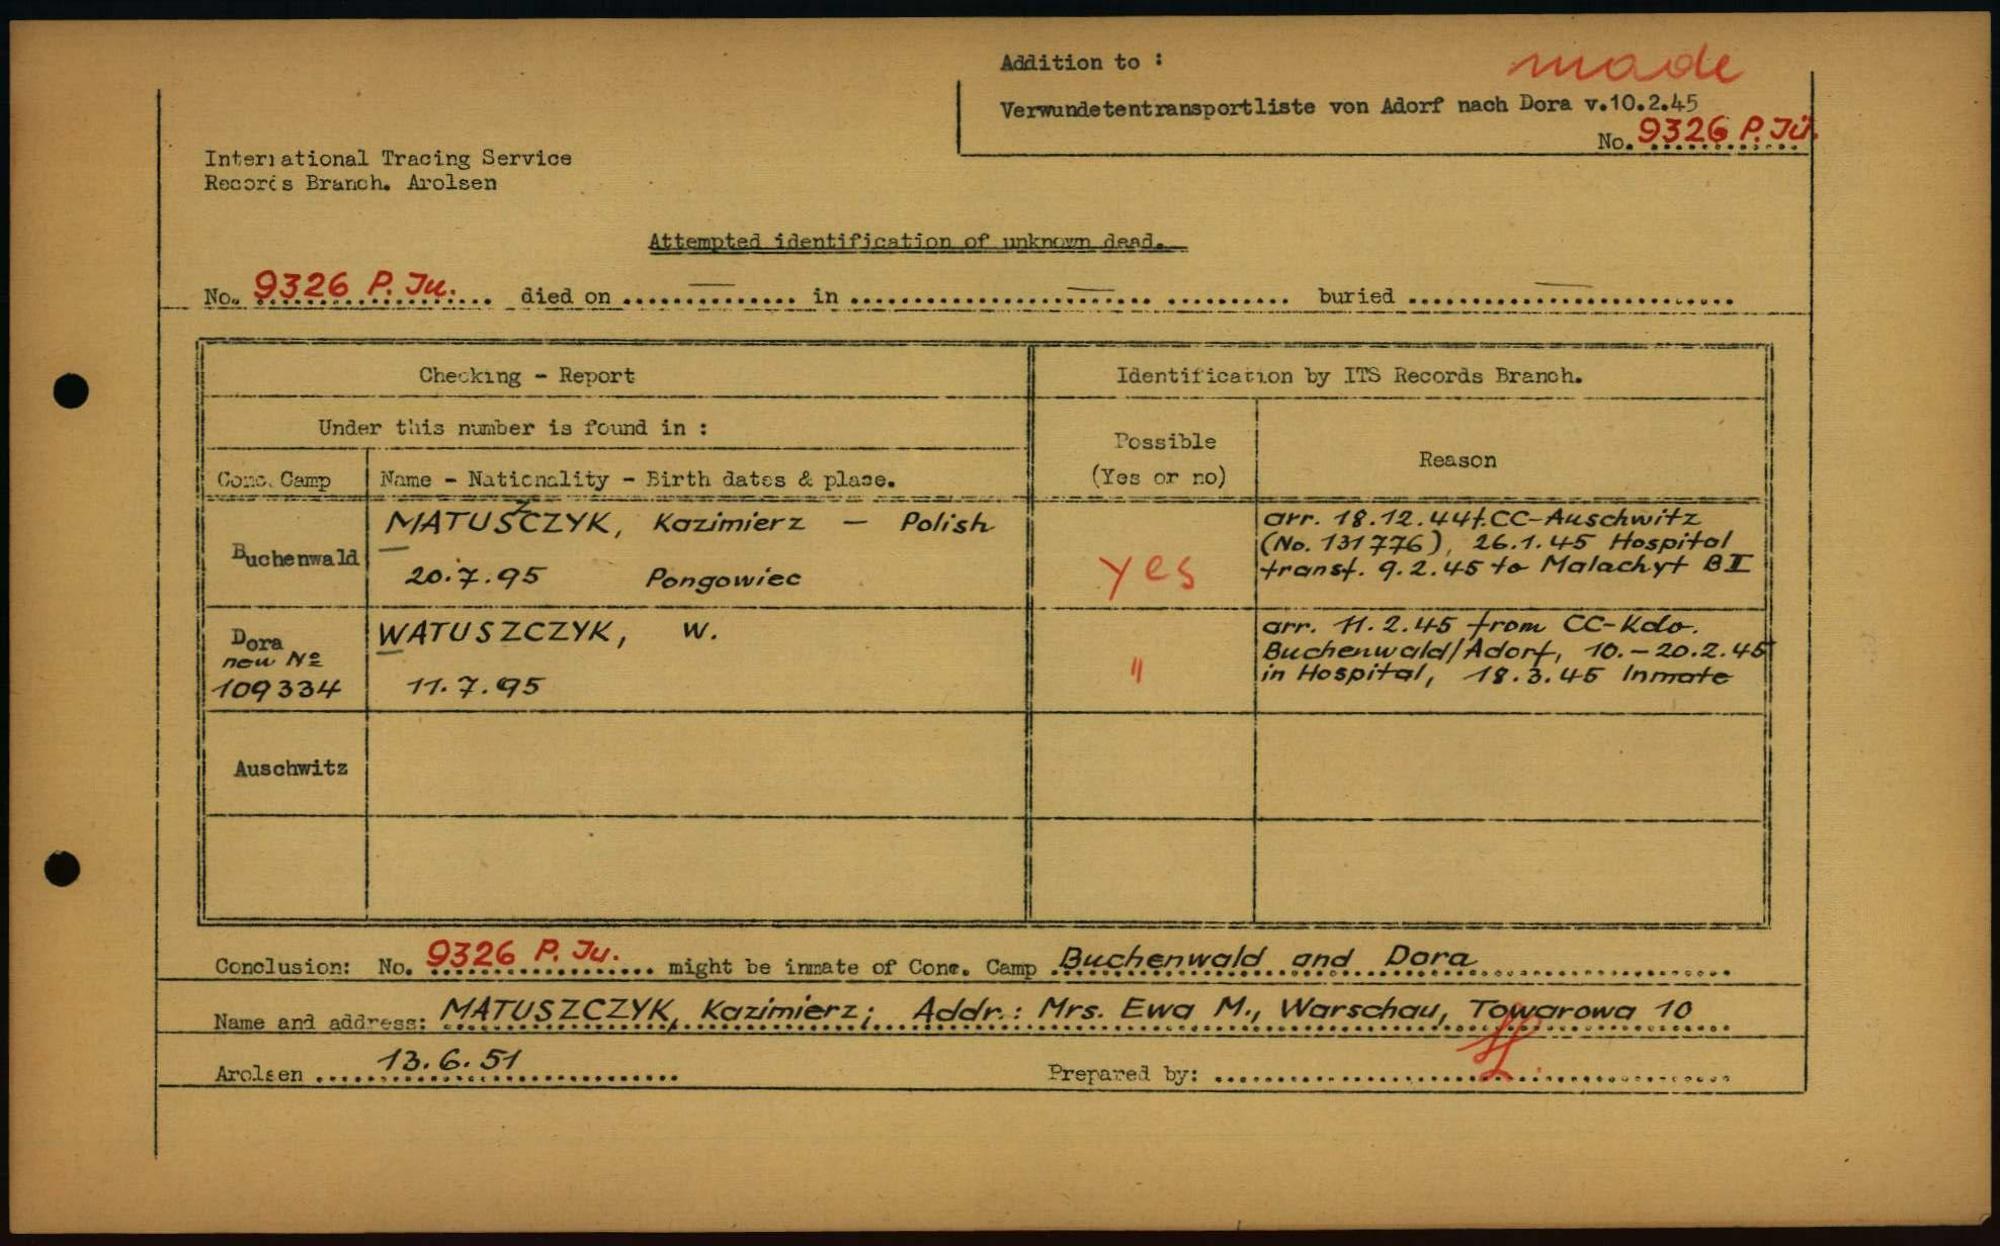 Addition to :
made
Verwundetentransportliste von Adorf nach Dora v.10.2.45
No. 9326 P. Ju.
International Tracing Service
Records Branch. Arolsen
Attempted identification of unknown dead.
No. 9326 P. Ju. died on — in — buried —
Checking - Report
Identification by ITS Records Branch.
Under this number is found in :
Possible
(Yes or no)
Reason
Conc. Camp
Name - Nationality - Birth dates & place.
Buchenwald
MATUSZCZYK, Kazimierz — Polish
20.7.95 Pongowiec
yes
arr. 18.12.44 f. CC-Auschwitz
(No. 131776), 26.1.45 Hospital
transf. 9.2.45 to Malachyt B II
Dora
new No
109334
WATUSZCZYK, W.
11.7.95
"
arr. 11.2.45 from CC-Kdo.
Buchenwald/Adorf, 10.-20.2.45
in Hospital, 18.3.45 Inmate
Auschwitz
Conclusion: No. 9326 P. Ju. might be inmate of Conc. Camp Buchenwald and Dora
Name and address: MATUSZCZYK, Kazimierz; Addr.: Mrs. Ewa M., Warschau, Towarowa 10
Arolsen 13.6.51
Prepared by: